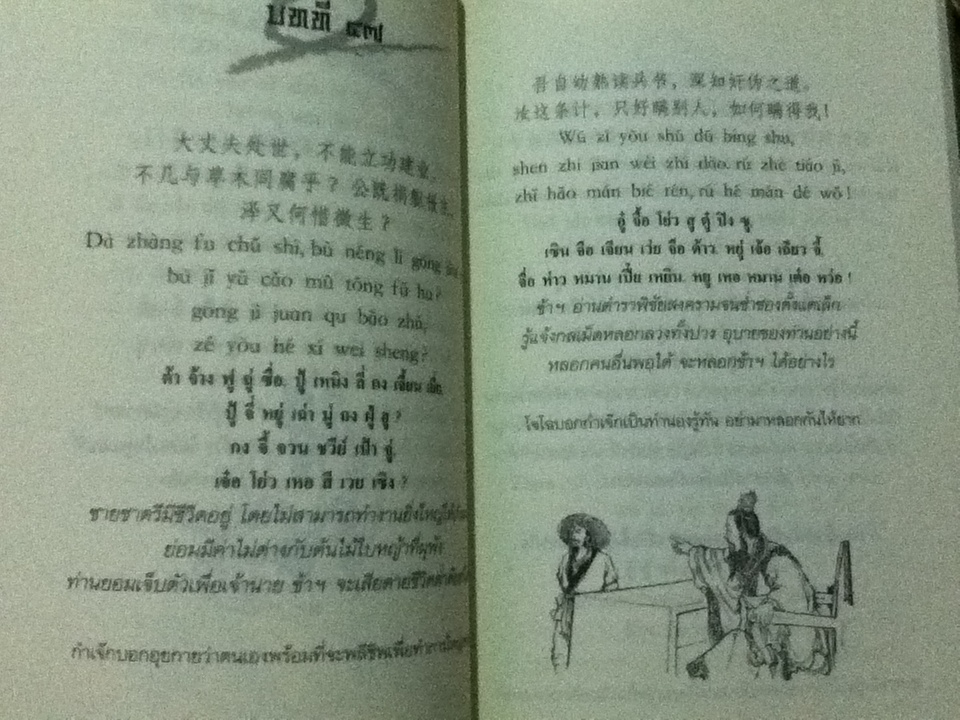 บทที่ ๔๗
大丈夫处世，不能立功建业，
不几与草木同腐乎？公既捐躯报主，
泽又何惜微生？
Dà zhàng fu chǔ shì, bù néng lì gōng
bù jǐ yǔ cǎo mù tóng fǔ hu?
gōng jì juan qu bào zhǔ,
zé yòu hé xí wei sheng?
ต้า จ้าง ฟู ฉู่ ซื่อ, ปู้ เหนิง ลี่ กง เจี้ยน เยี่ย
ปู้ จี่ หยู่ เฉ่า มู่ ถง ฝู่ ฮู ?
กง จี้ จวน ชวีย์ เป้า จู่,
เจ๋อ โย่ว เหอ สี เวย เซิง ?
ชายชาตรีมีชีวิตอยู่ โดยไม่สามารถทำงานยิ่งใหญ่ให้
ย่อมมีค่าไม่ต่างกับต้นไม้ใบหญ้าที่ผุพัง
ท่านยอมเจ็บตัวเพื่อเจ้านาย ข้าฯ จะเสียดายชีวิต
กำเจ๊กบอกอุยกายว่าตนเองพร้อมที่จะพลีชีพเพื่อทำการ
吾自幼熟读兵书，深知奸伪之道。
汝这条计，只好瞒别人，如何瞒得我！
Wú zì yòu shú dú bing shu,
shen zhi jian wěi zhi dào. rǔ zhè tiáo jì,
zhǐ hǎo mán bié rén, rú hé mán dé wǒ !
อู๋ จื้อ โย่ว สู ตู๋ ปิง ซู,
เซิน จือ เจียน เว่ย จือ ต้าว. หยู่ เจ้อ เถียว จี้,
จื่อ ห่าว หมาน เปี๋ย เหยิน, หยู เหอ หมาน เต๋อ หว่อ !
ข้าฯ อ่านตำราพิชัยสงครามจนช่ำชองตั้งแต่เล็ก
รู้แจ้งกลเม็ดหลอกลวงทั้งปวง อุบายของท่านอย่างนี้
หลอกคนอื่นพอได้ จะหลอกข้าฯ ได้อย่างไร
โจโฉบอกกำเจ๊กเป็นทำนองรู้ทัน อย่ามาหลอกกันให้ยาก